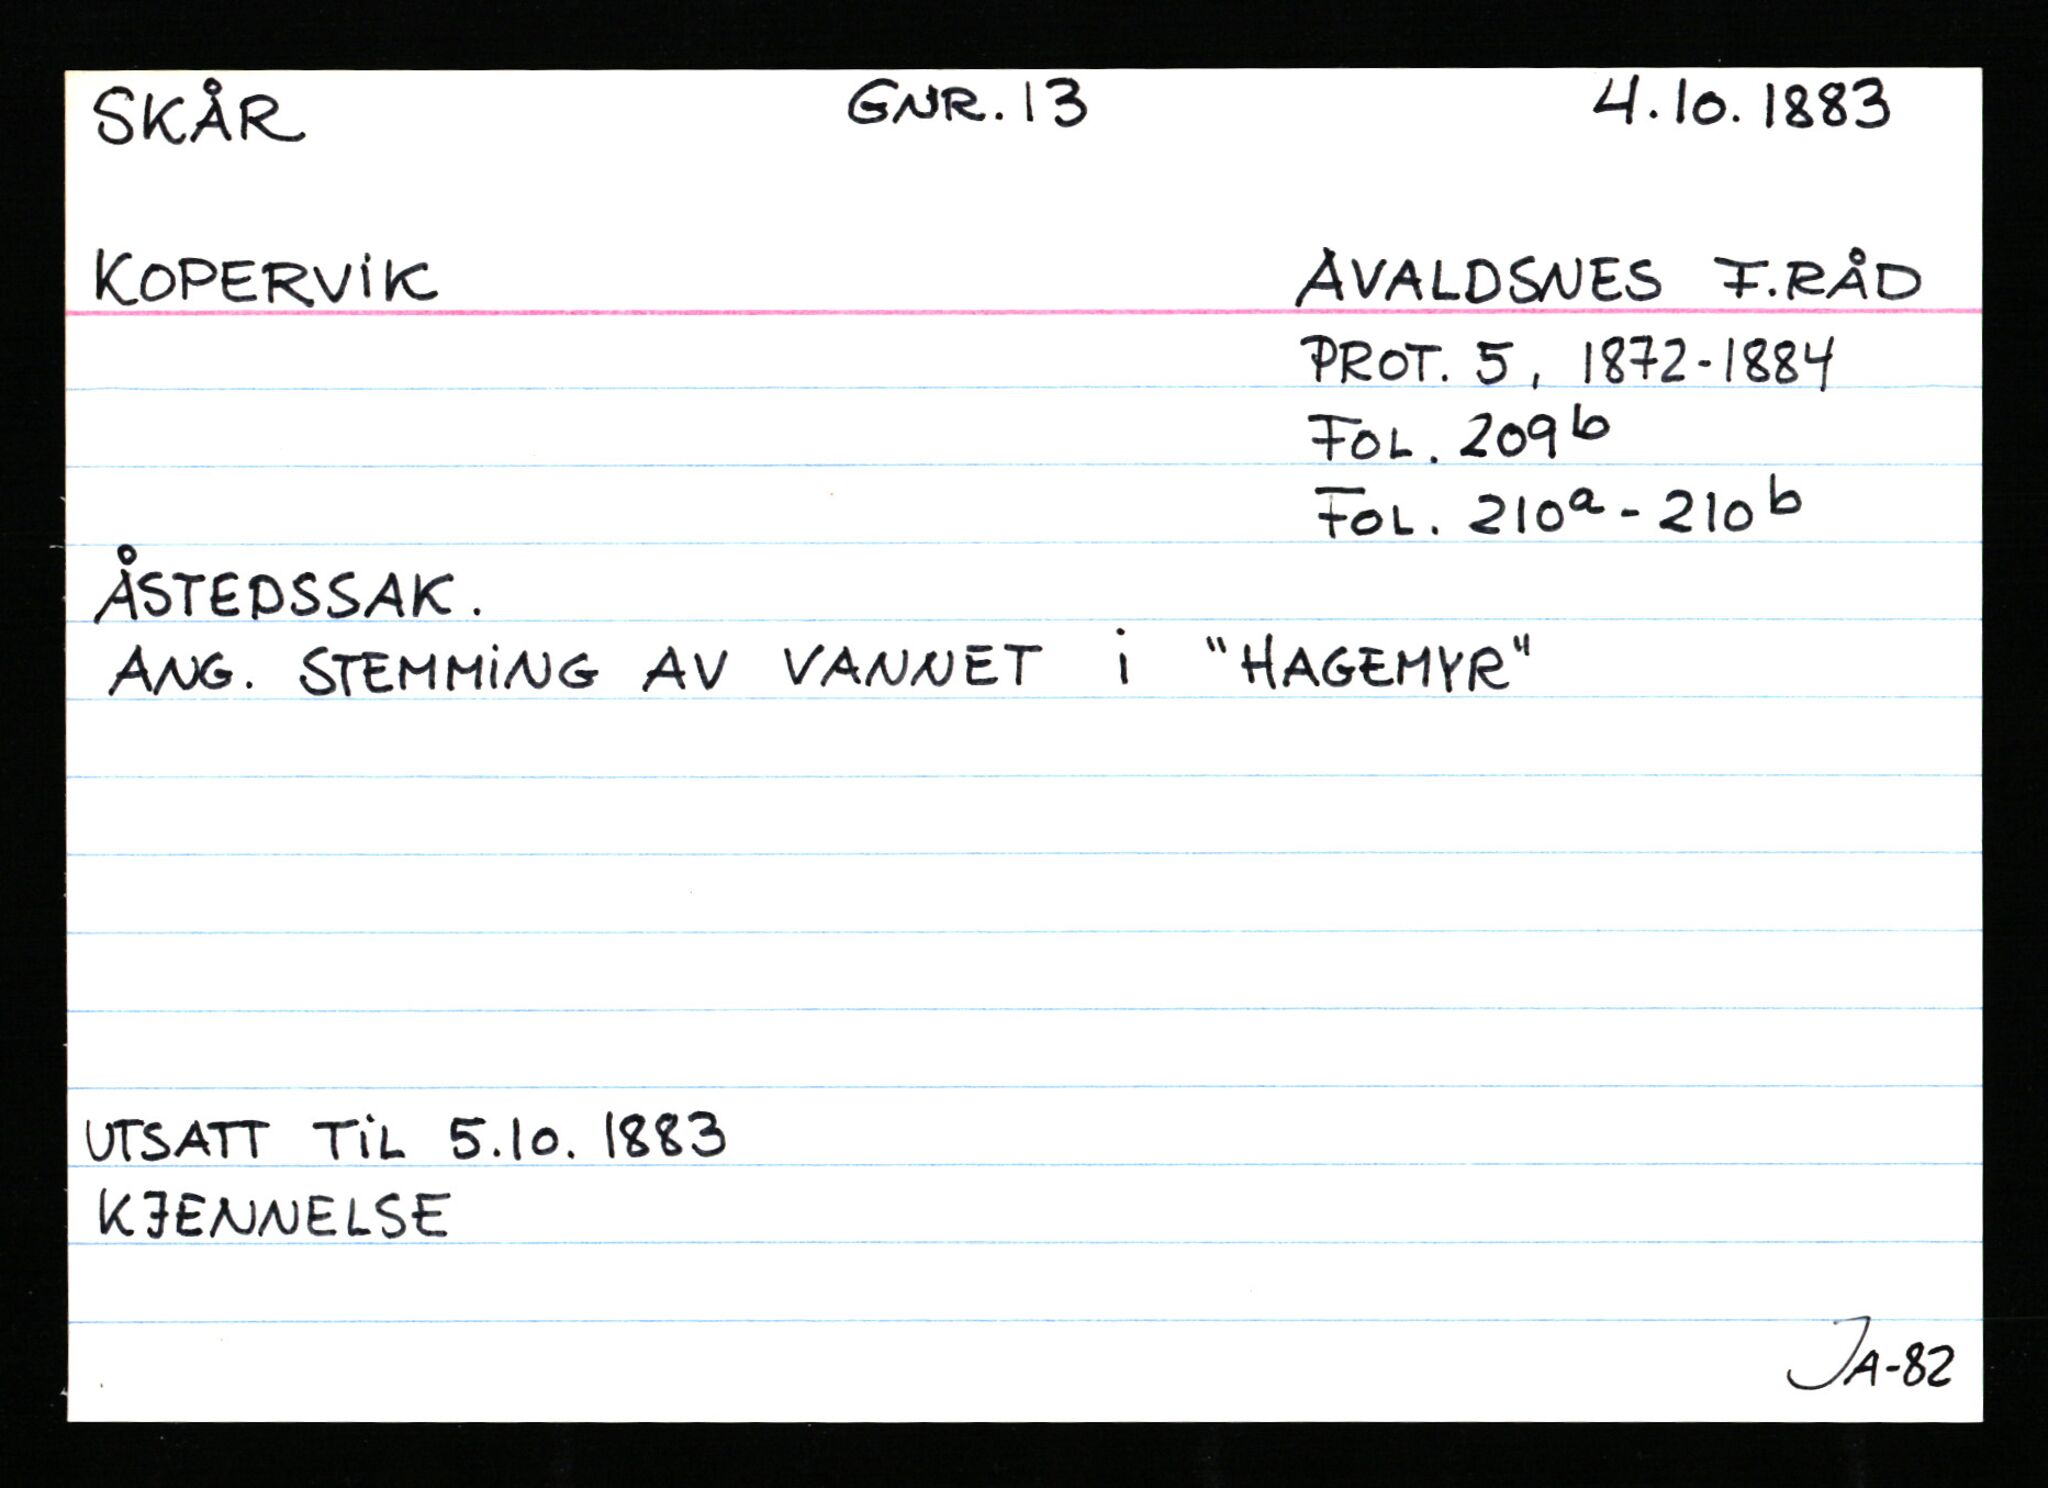 SKÅR GNR. 13 4.10.1883
KOPERVIK AVALDSNES F.RÅD
PROT. 5, 1872-1884
FOL. 209b
FOL. 210a - 210b
ÅSTEDSSAK.
ANG. STEMMING AV VANNET I "HAGEMYR"
UTSATT TIL 5.10.1883
KJENNELSE
JA-82